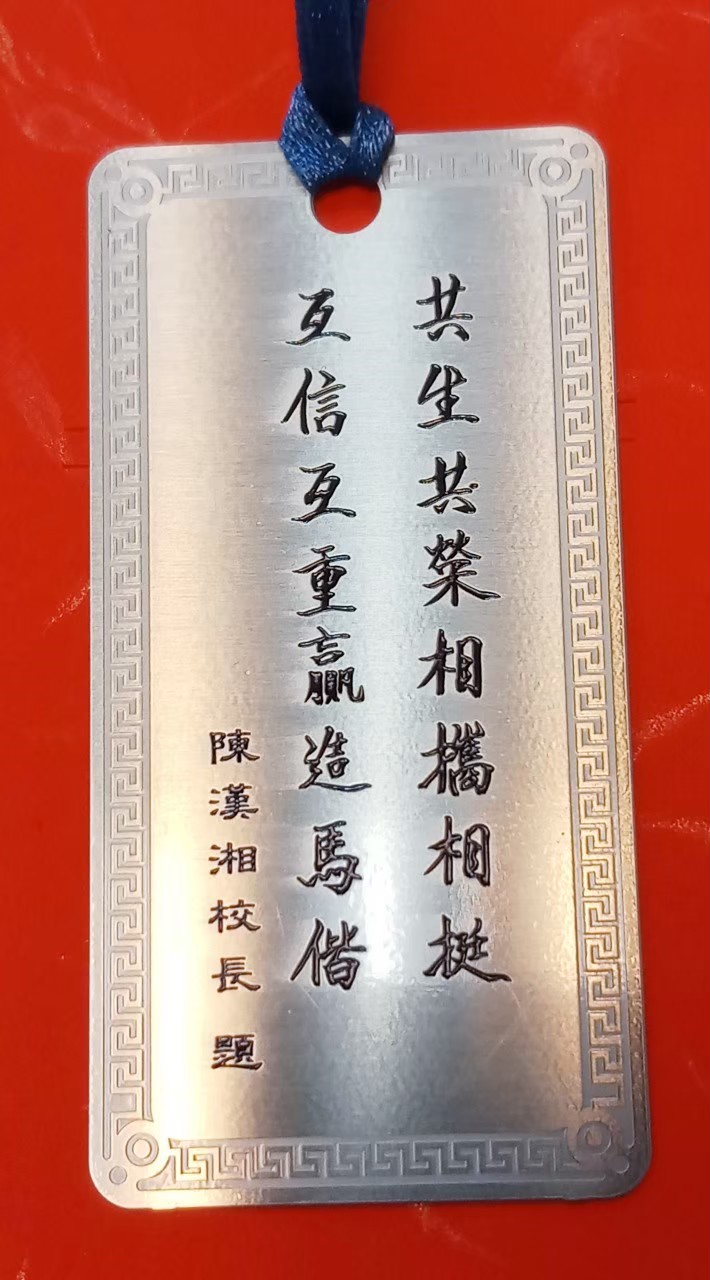 共生共榮相攜相挺
互信互重贏造馬偕
陳漢湘校長 題